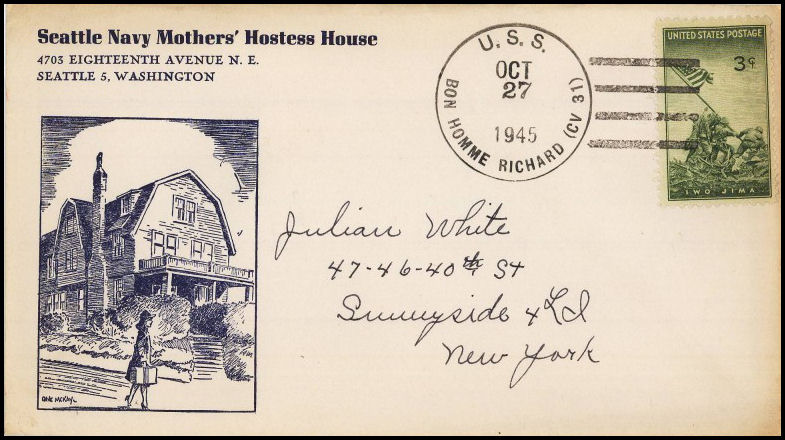 Seattle Navy Mothers' Hostess House
4703 EIGHTEENTH AVENUE N. E.
SEATTLE 5, WASHINGTON
U. S. S.
OCT
27
1945
BON HOMME RICHARD (CV 31)
UNITED STATES POSTAGE
3¢
IWO JIMA
Julian White
47-46-40th St
Sunnyside 4 LI
New York